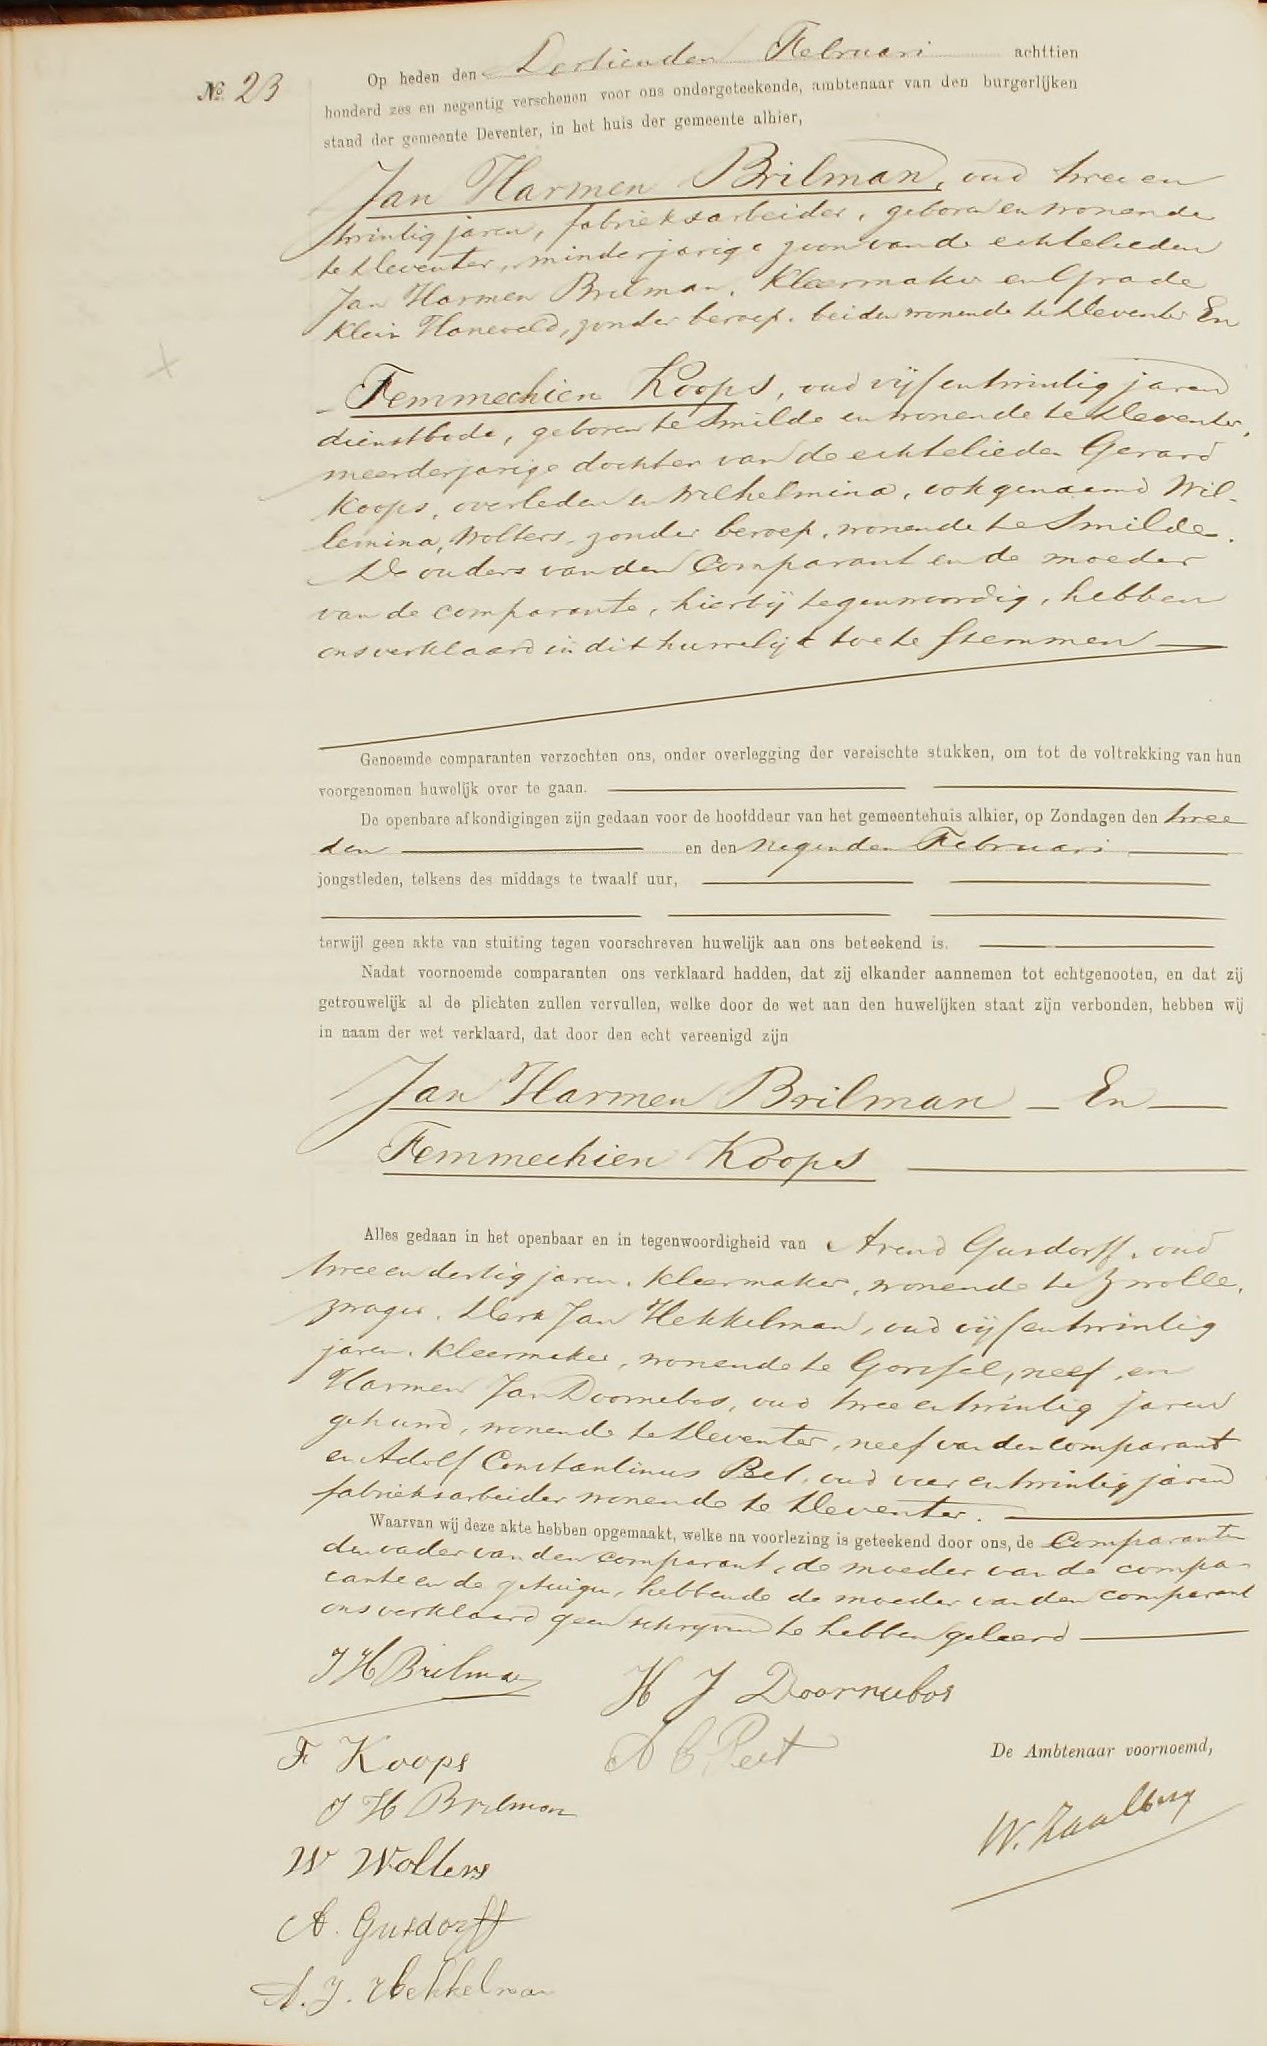 No. 23
Op heden den Dertienden Februari achttien
honderd zes en negentig verschenen voor ons ondergeteekende, ambtenaar van den burgerlijken
stand der gemeente Deventer, in het huis der gemeente alhier,
Jan Harmen Brilman, oud twee en
twintig jaren, fabrieksarbeider, geboren en wonende
te Deventer, minderjarige zoon van de echtelieden
Jan Harmen Brilman, kleermaker en Grada
Klein Haneveld, zonder beroep, beiden wonende te Deventer En
Femmechien Koops, oud vijf en twintig jaren
dienstbode, geboren te Smilde en wonende te Deventer,
meerderjarige dochter van de echtelieden Gerard
Koops, overleden en Wilhelmina, ook genaamd Wil-
lemina, Wolters, zonder beroep, wonende te Smilde.
De ouders van den Comparant en de moeder
van de comparante, hierbij tegenwoordig, hebben
ons verklaard in dit huwelijk toe te stemmen
Genoemde comparanten verzochten ons, onder overlegging der vereischte stukken, om tot de voltrekking van hun
voorgenomen huwelijk over te gaan.
De openbare afkondigingen zijn gedaan voor de hoofddeur van het gemeentehuis alhier, op Zondagen den twee
den en den negenden Februari
jongstleden, telkens des middags te twaalf uur,
terwijl geen akte van stuiting tegen voorschreven huwelijk aan ons beteekend is.
Nadat voornoemde comparanten ons verklaard hadden, dat zij elkander aannemen tot echtgenooten, en dat zij
getrouwelijk al de plichten zullen vervullen, welke door de wet aan den huwelijken staat zijn verbonden, hebben wij
in naam der wet verklaard, dat door den echt vereenigd zijn
Jan Harmen Brilman - En
Femmechien Koops
Alles gedaan in het openbaar en in tegenwoordigheid van Arend Gusdorff, oud
twee en dertig jaren, kleermaker, wonende te Zwolle,
zwager, Derk Jan Hekkelman, oud vijf en twintig
jaren, kleermaker, wonende te Gorssel, neef, en
Harmen Jan Doornebos, oud twee en twintig jaren
gehuwd, wonende te Deventer, neef van den comparant
en Adolf Constantinus Bet, oud vier en twintig jaren
fabrieksarbeider wonende te Deventer.
Waarvan wij deze akte hebben opgemaakt, welke na voorlezing is geteekend door ons, de Comparanten
den vader van den comparant, de moeder van de compa-
rante en de getuigen, hebbende de moeder van den comparant
ons verklaard geen schrijven te hebben geleerd
J H Brilman
H J Doornebos
F Koops
A C Peet
De Ambtenaar voornoemd,
J H Brilman
W. Zaalberg
W Wolters
A. Gusdorff
D. J. Hekkelman